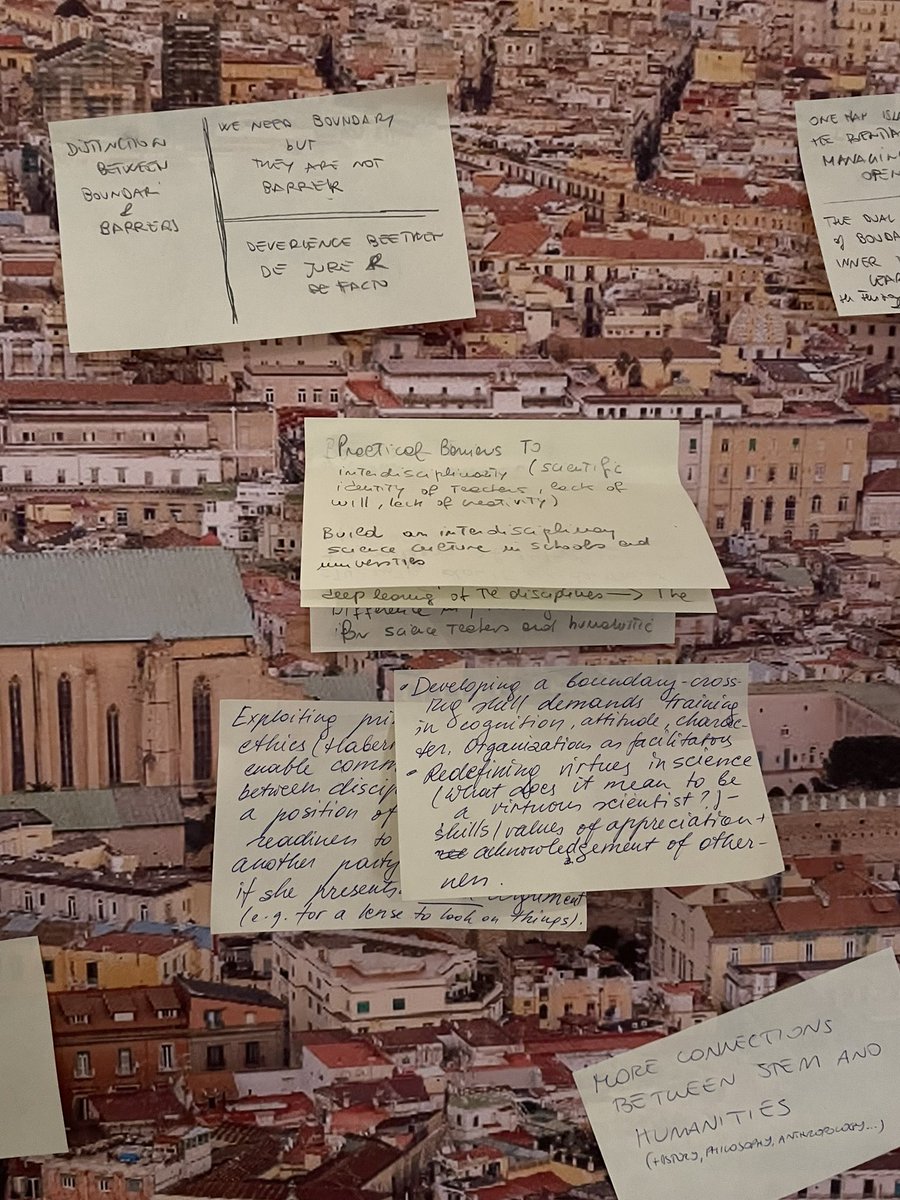 DISTINCTION
BETWEEN
BOUNDARI
&
BARRERS
WE NEED BOUNDARY
bUT
THEY ARE NOT
BARRER
DEVERIENCE BEETHEN
DE JURE &
DE FACTO
ONE MAY
MANAGIN
OPEN
THE DUAL
of BOUNDA
INNER
LEAR
Practical Barriers To
interdisciplinarity (scientific
identity of Teachers, lack of
will, lack of creativity)
Build an interdisciplinary
science culture in schools and
universities
deep learing of The disciplines → The
Difference in
for science Teachers and humanistic
Exploiting pri
ethics (Haber
enable comm
between discip
a position of
readiness to
another party
if she presents
argument
(e.g. for a lense to look on things).
• Developing a boundary-cross-
ing skill demands training
in cognition, attitude, charac-
ter. Organizations as facilitators
• Redefining virtues in science
(what does it mean to be
a virtuous scientist?) -
skills/values of appreciation +
acknowledgement of other-
ness.
MORE CONNECTIONS
BETWEEN STEM AND
HUMANITIES
(HISTORY, PHILOSOPHY, ANTHROPOLOGY...)